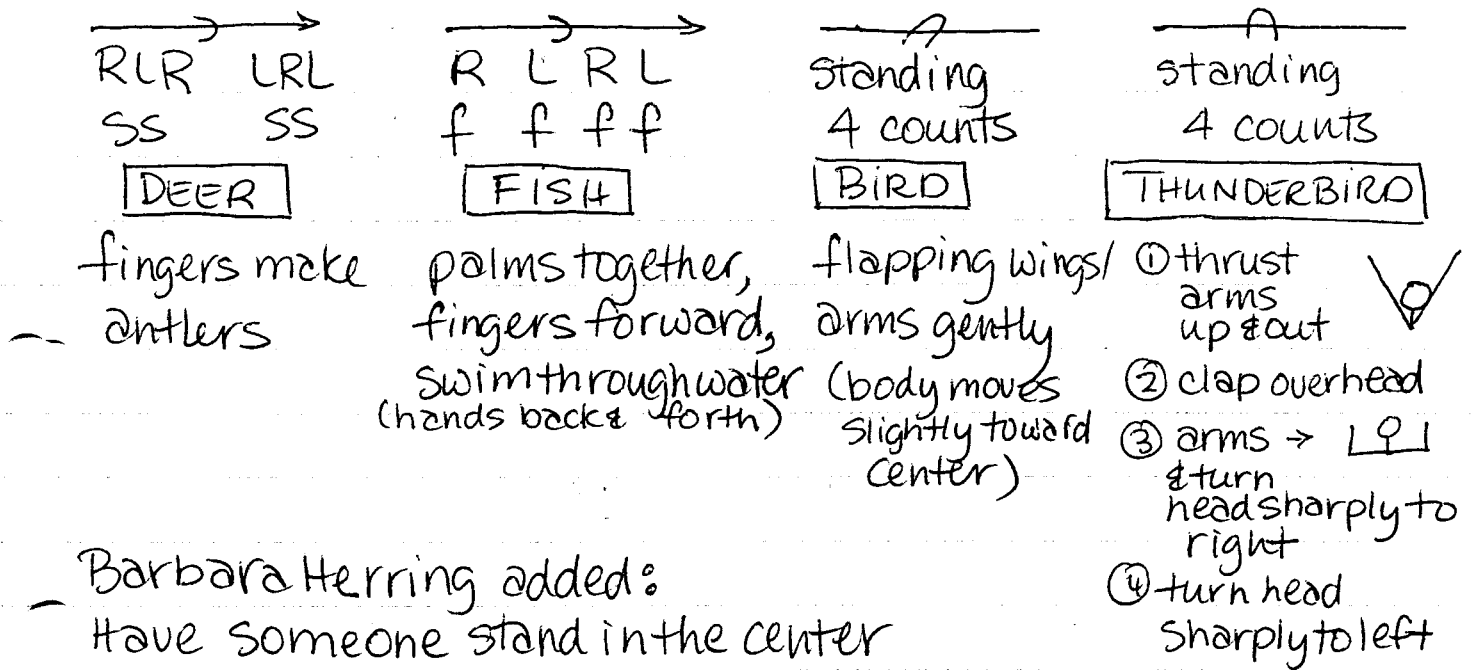 RLR LRL
SS SS
DEER
fingers make
antlers
R L R L
f f f f
FISH
palms together,
fingers forward,
swim through water
(hands back & forth)
standing
4 counts
BIRD
flapping wings/
arms gently
(body moves
slightly toward
center)
standing
4 counts
THUNDERBIRD
① thrust
arms
up & out
② clap overhead
③ arms →
& turn
head sharply to
right
④ turn head
sharply to left
Barbara Herring added:
Have someone stand in the center